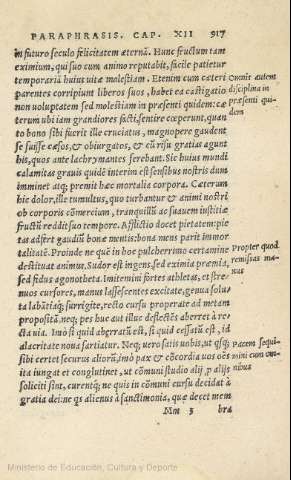 PARAPHRASIS. CAP. XII 917
in futuro seculo felicitatem æternã. Hunc fructum tam
eximium, qui suo cum animo reputabit, facile patietur
temporariã huius vitæ molestiam. Etenim cum cæteri
parentes corripiunt liberos suos, habet ea castigatio
non voluptatem sed molestiam in præsenti quidem: cæ
terum ubi iam grandiores facti, sentire cœperunt, quan
to bono sibi fuerit ille cruciatus, magnopere gaudent
se fuisse cæsos, & obiurgatos, & cũ risu gratias agunt
his, quos ante lacrymantes ferebant. Sic huius mundi
calamitas gravis quidẽ interim est sensibus nostris dum
imminet atq; premit hæc mortalia corpora. Cæterum
hic dolor, ille tumultus, quo turbantur & animi nostri
ob corporis cõmercium, tranquillũ ac suavem iustitiæ
fructũ reddit suo tempore. Afflictio docet pietatem: pie
tas adfert gaudiũ bonæ mentis: bona mens parit immor
talitatẽ. Proinde ne quẽ in hoc pulcherrimo certamine
destituat animus. Sudor est ingens, sed eximia præmia,
sed fidus agonotheta. Imitemini fortes athletas, et stre
nuos cursores, manus lassescentes excitate, genua solu
ta labãtiaq;, surrigite, recto cursu properate ad metam
propositã. neq; pes huc aut illuc deflectẽs aberret à re
cta via. Imò si quid aberratũ est, si quid cessatũ est, id
alacritate nova sartiatur. Neq; vero satis vobis, ut q̃sq;
sibi certet securus aliorũ, imò pax & cõcordia vos oẽs
ita iungat et conglutinet, ut cõmuni studio alij p̃ alijs
soliciti sint, curentq; ne quis in cõmuni cursu decidat à
gratia dei: ne q̃s alienus à sanctimonia, quæ decet mem
Mm 3 bra
Omnis autem
disciplina in
præsenti qui-
dem
Propter quod
remissas ma-
nus
Pacem sequi-
mini cum om-
nibus
Ministerio de Educación, Cultura y Deporte